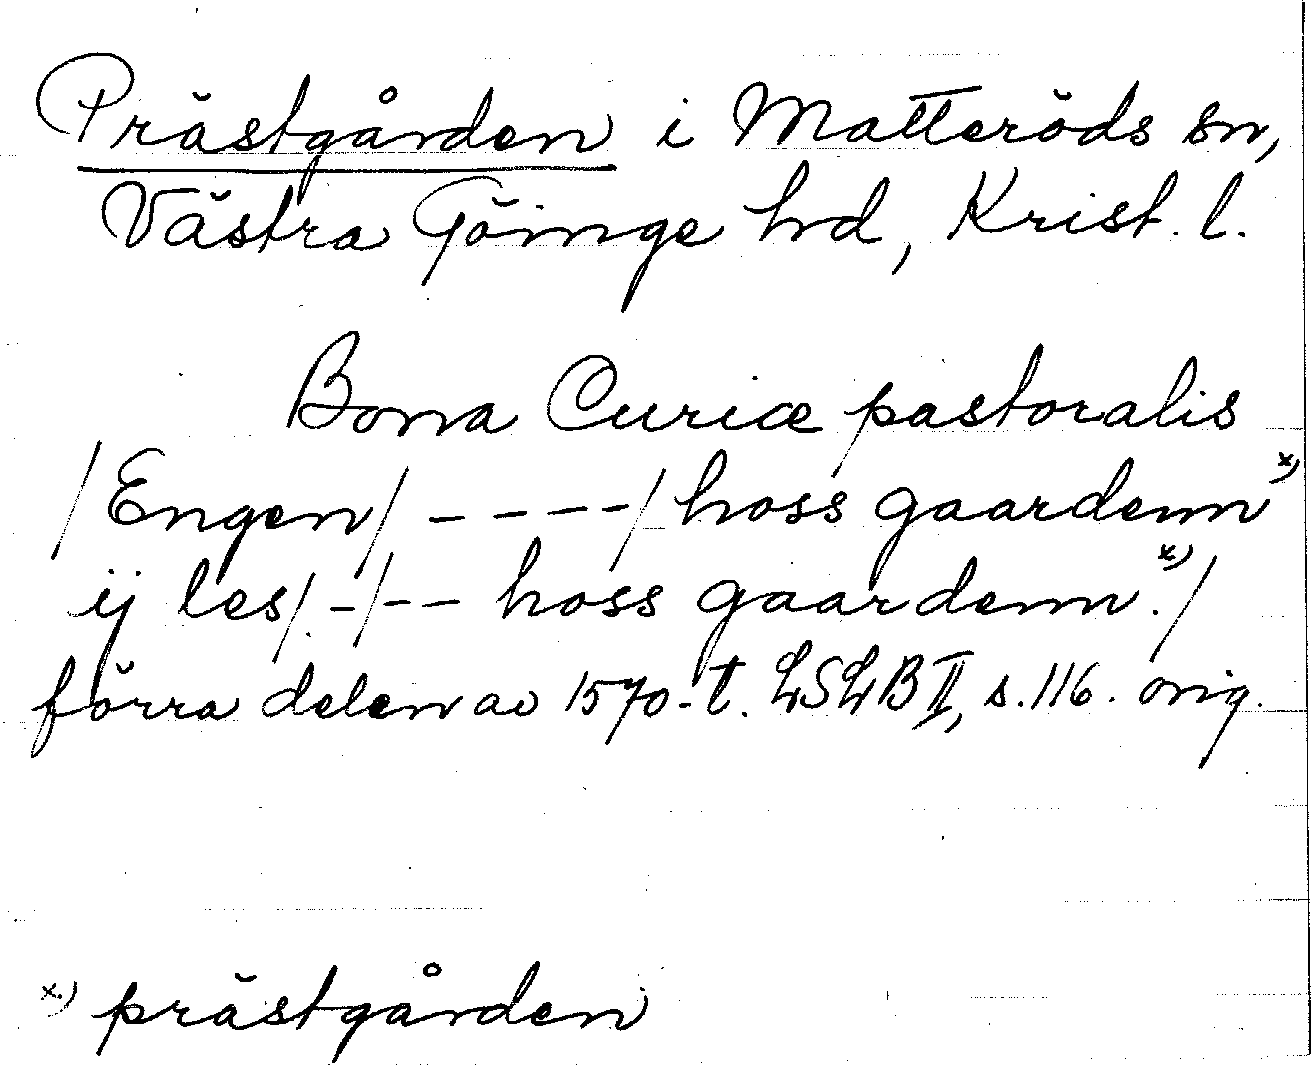 Prästgården i Matteröds sn,
Västra Göinge hd, Krist. l.
Bona Curiæ pastoralis
/Engen/ ----/hoss gaardenn x)
ij les/-/-- hoss gaardenn x)./
förra delen av 1570-t. LSLB II, s. 116. orig.
x) prästgården